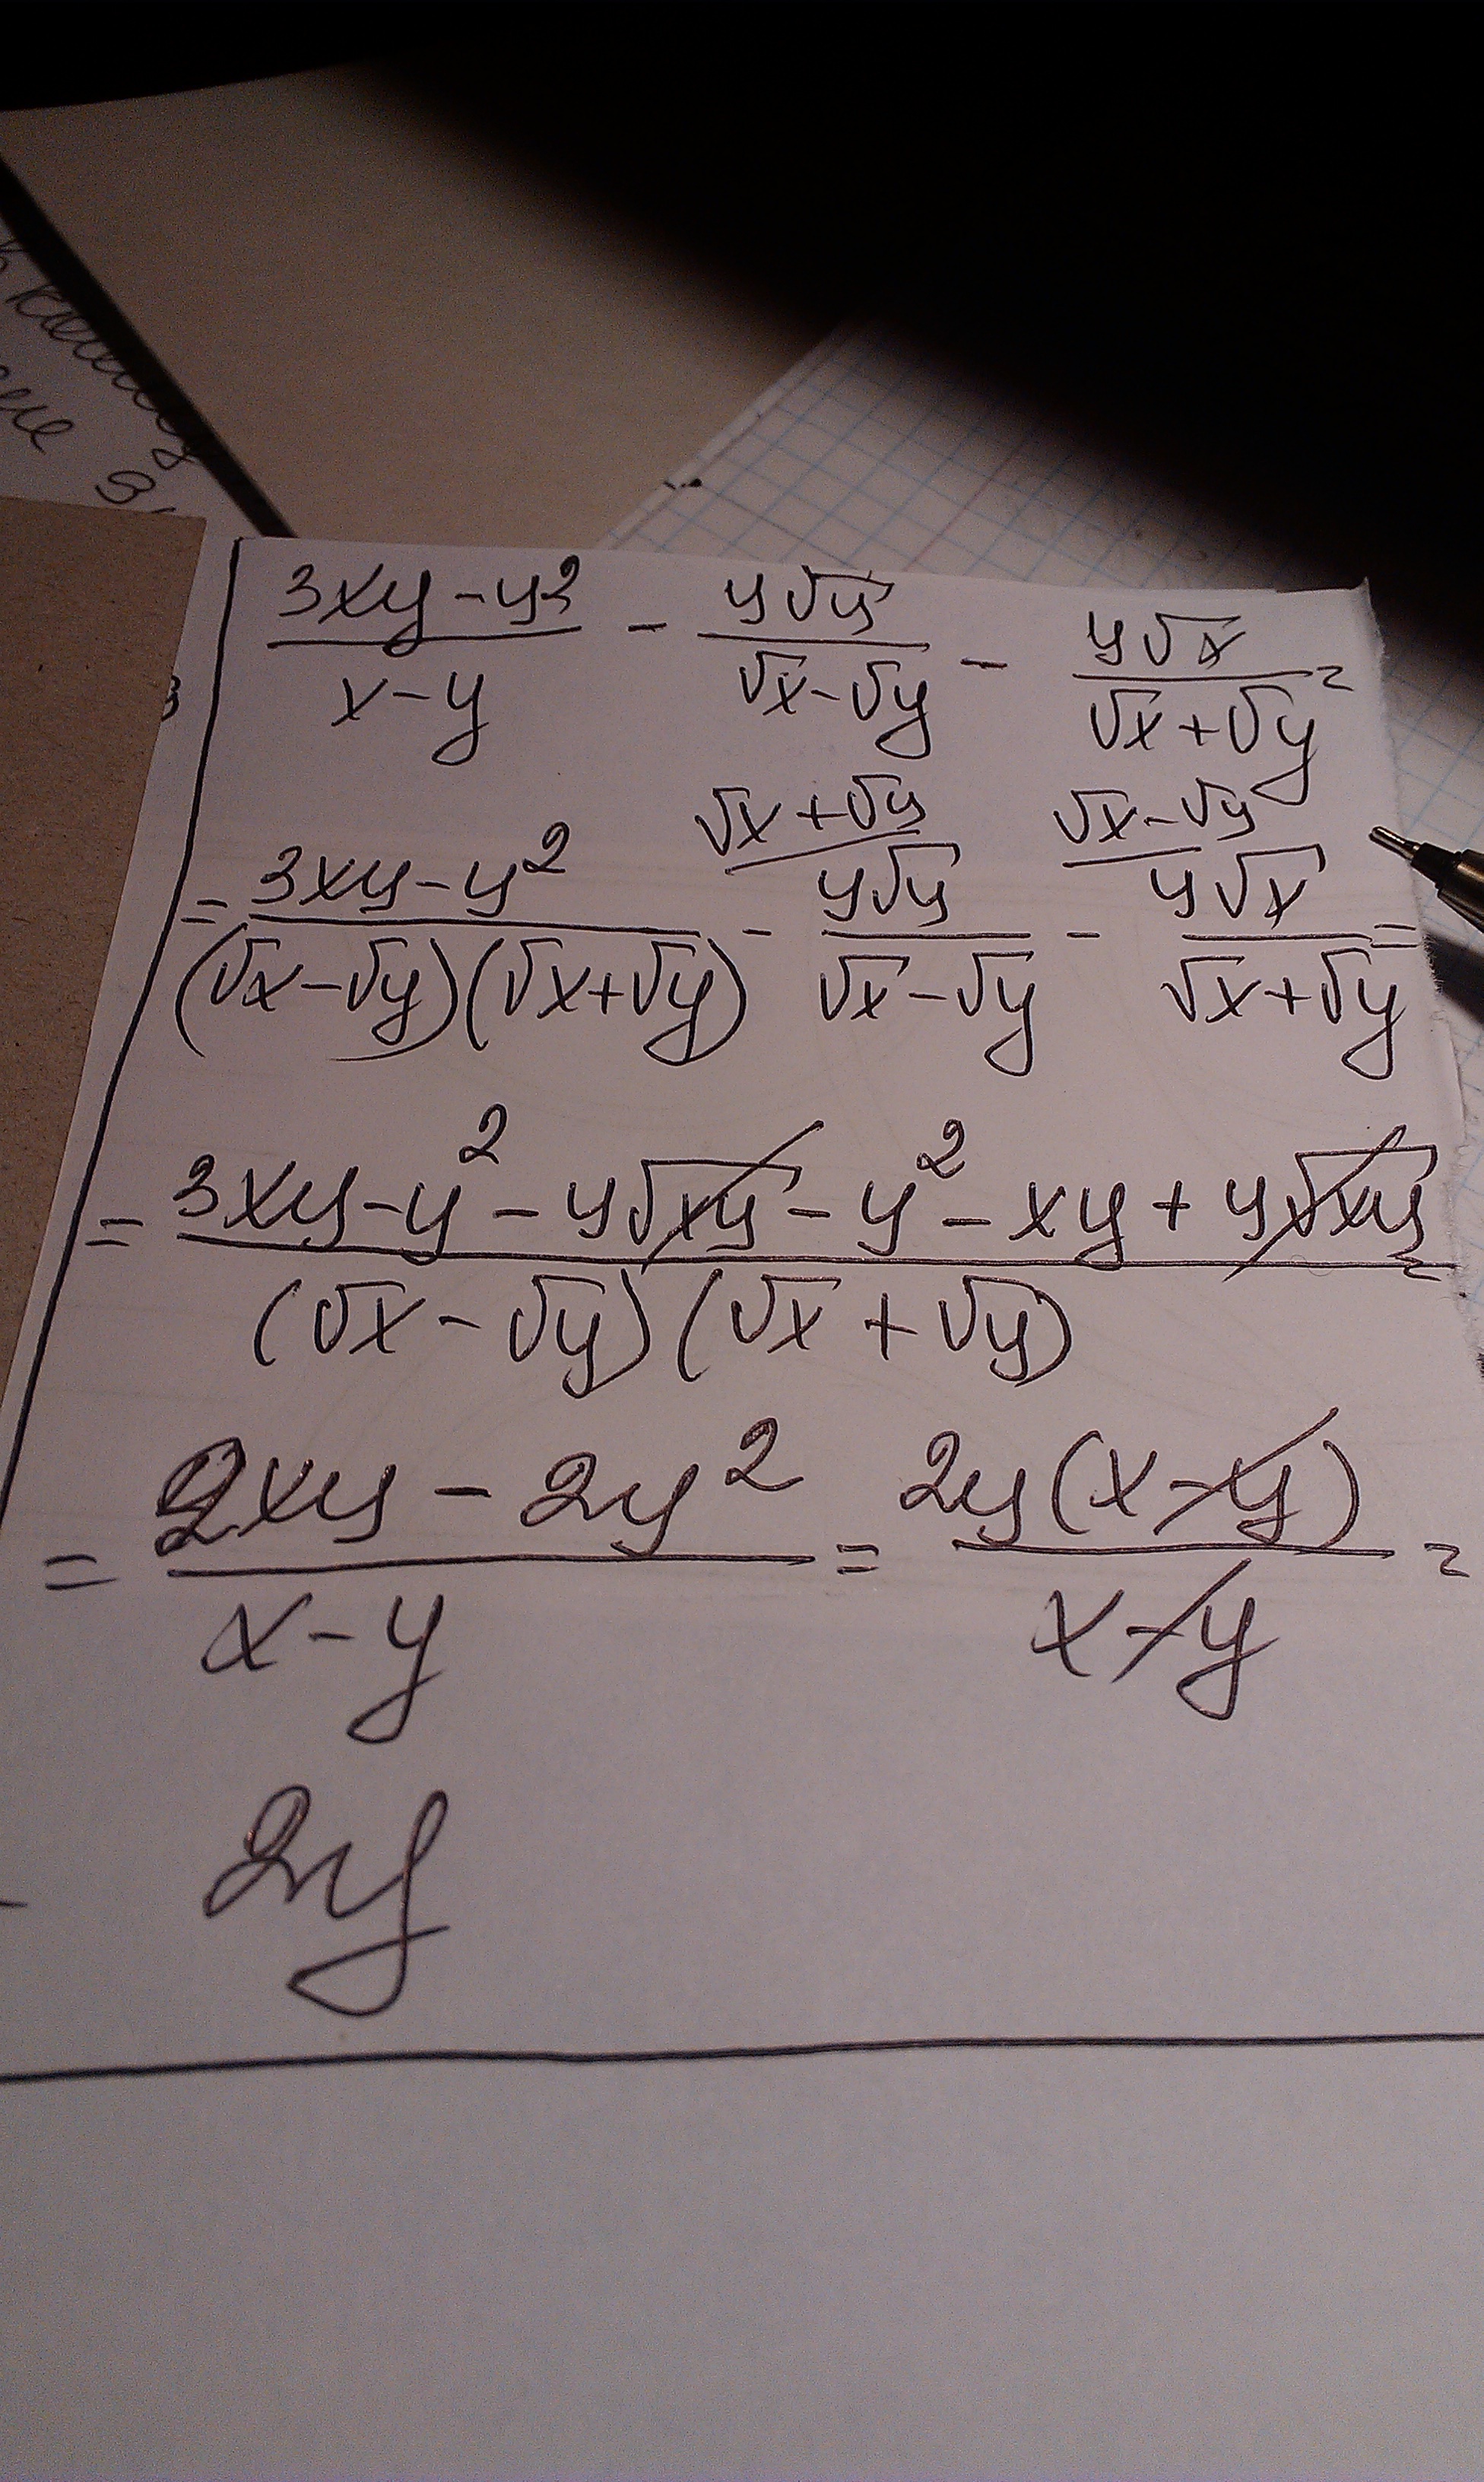 3xy-y²/x-y - y√y/√x-√y - y√x/√x+√y =
√x+√y √x-√y
= 3xy-y²/(√x-√y)(√x+√y) - y√y/√x-√y - y√x/√x+√y =
= 3xy-y²-y√xy-y²-xy+y√xy/(√x-√y)(√x+√y) =
= 2xy-2y²/x-y = 2y(x-y)/x-y =
2y